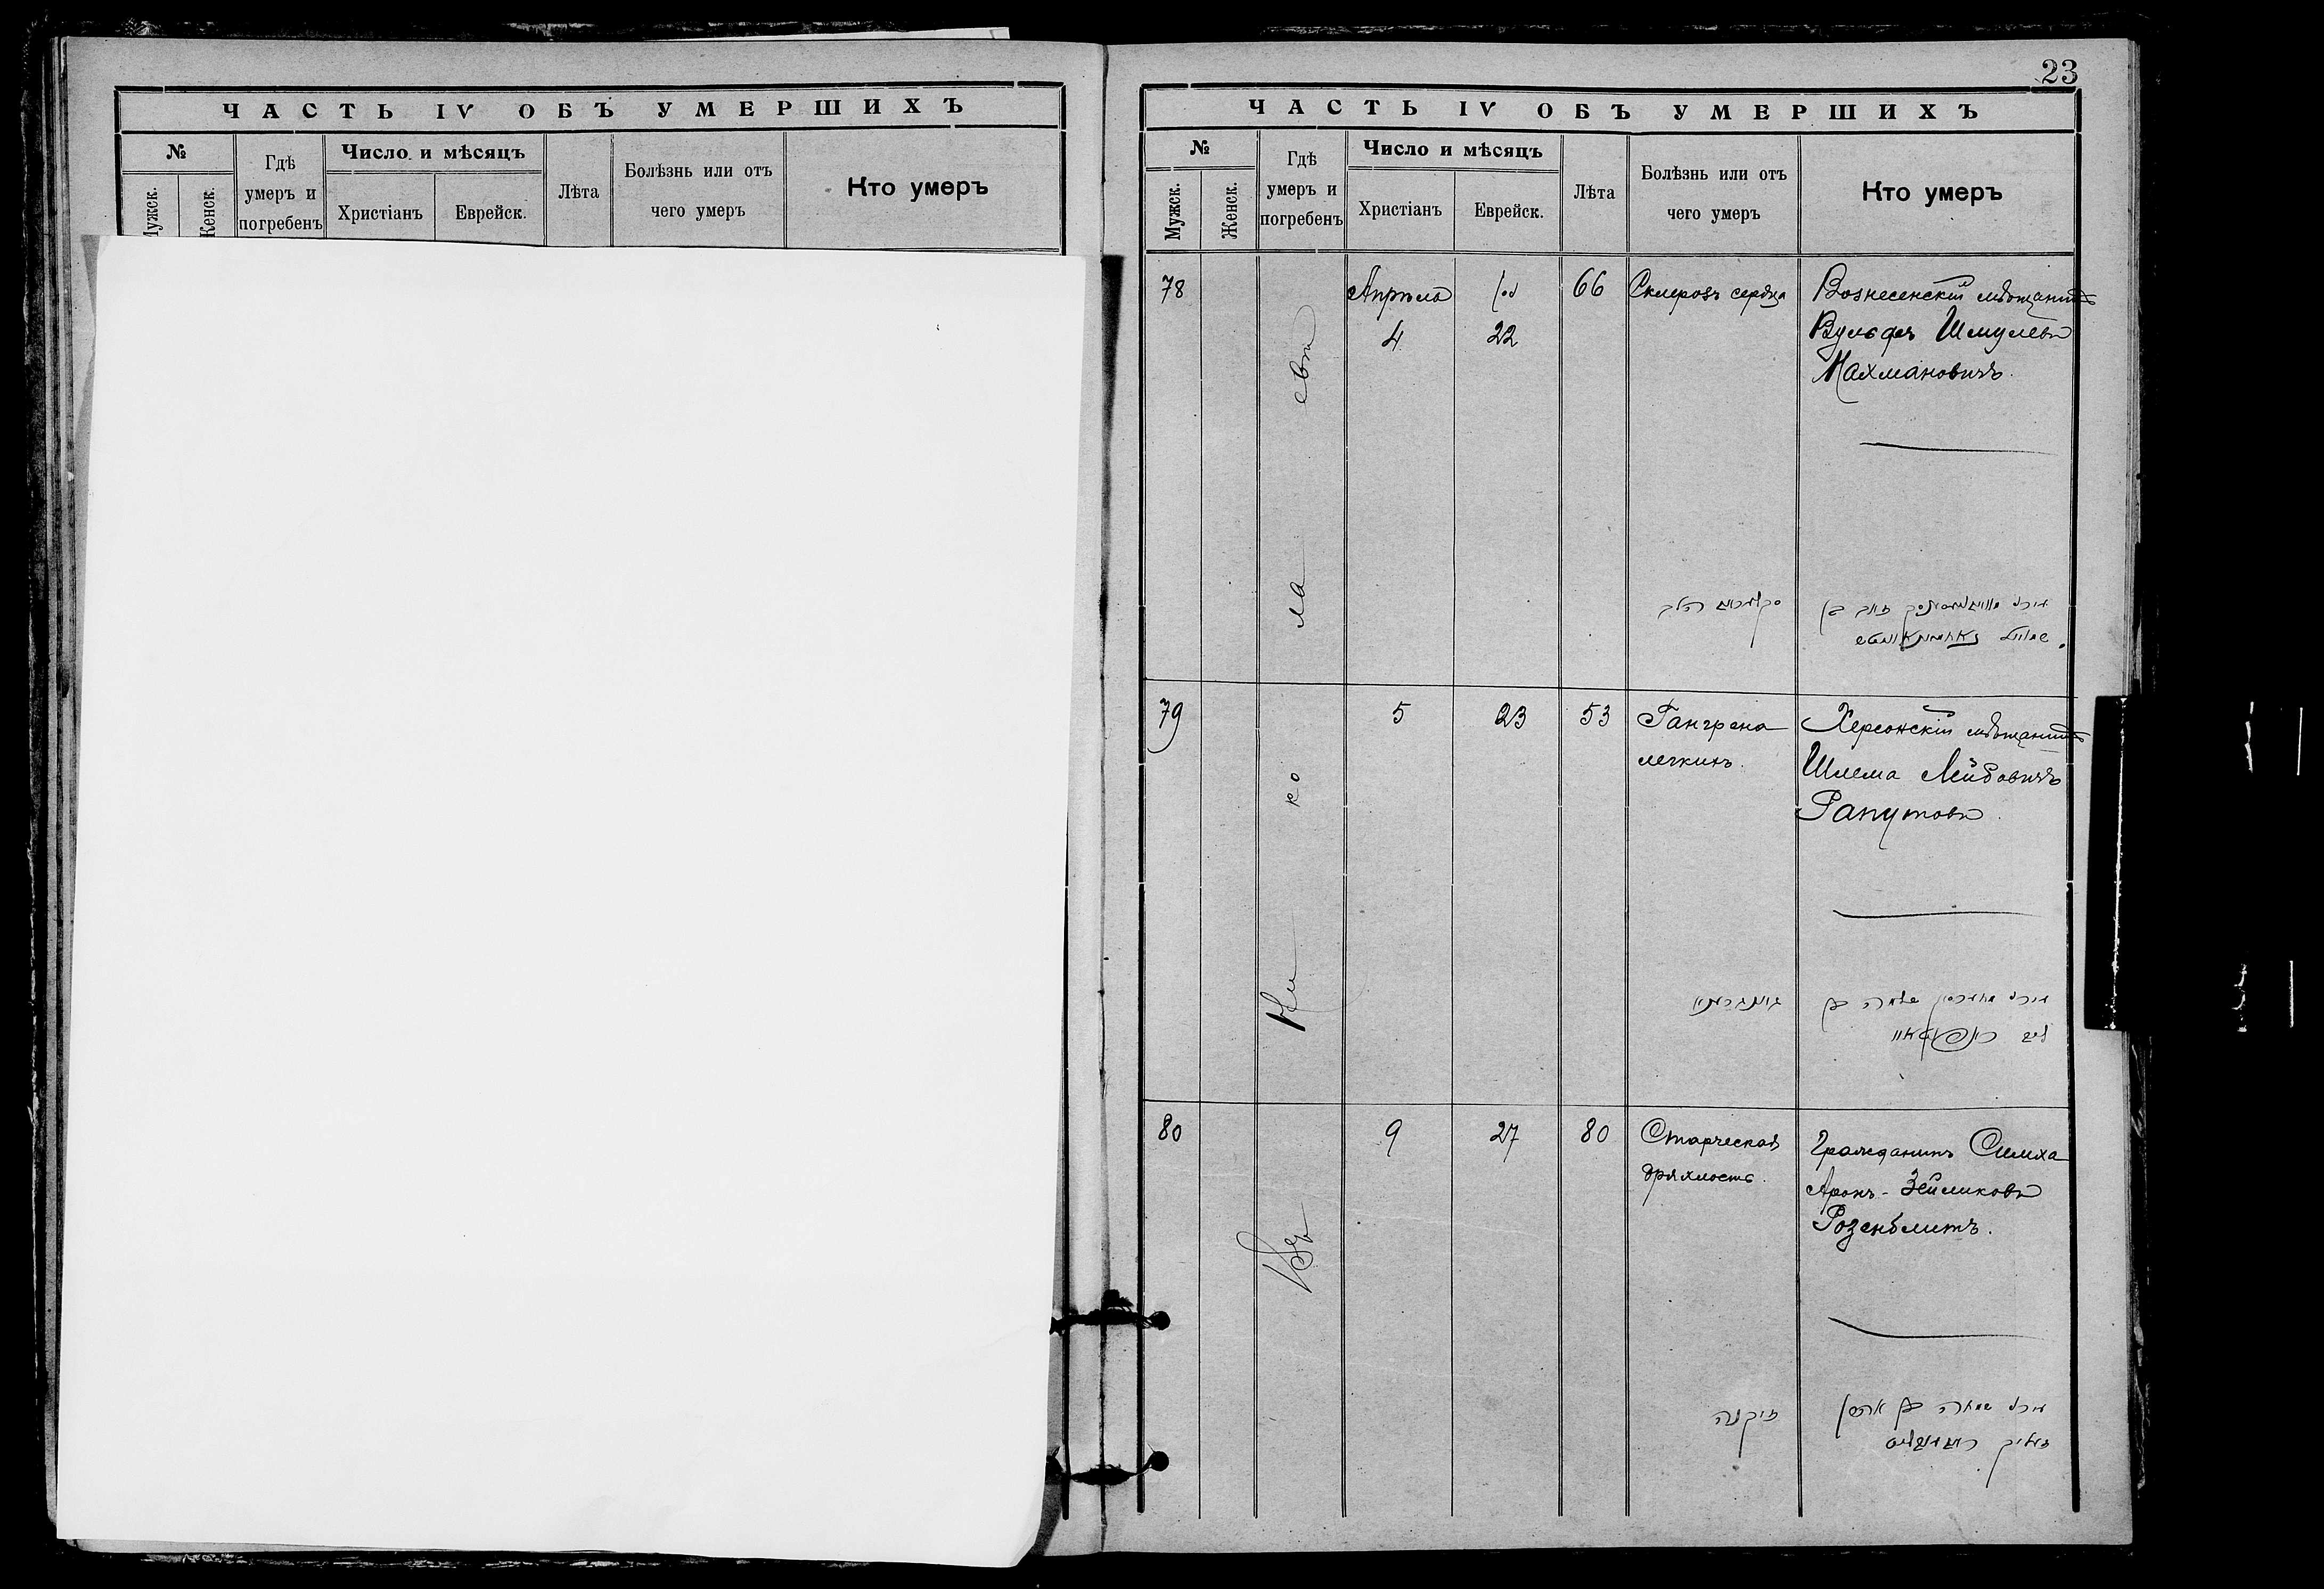 ЧАСТЬ IV ОБЪ УМЕРШИХЪ
№
Мужск.
Женск.
Гдѣ
умеръ и
погребенъ
Число и мѣсяцъ
Христіанъ
Еврейск.
Лѣта
Болѣзнь или отъ
чего умеръ
Кто умеръ
23
ЧАСТЬ IV ОБЪ УМЕРШИХЪ
№
Мужск.
Женск.
Гдѣ
умеръ и
погребенъ
Число и мѣсяцъ
Христіанъ
Еврейск.
Лѣта
Болѣзнь или отъ
чего умеръ
Кто умеръ
Въ Николаевѣ
78
Апрѣль
4
ניסן
22
66
Склерозъ сердца
Вознесенскій мѣщанинъ
Вульфъ Шмулевъ
Нахмановичъ.
79
5
23
53
Гангрена
легкихъ.
Херсонскій мѣщанинъ
Шлема Лейбовичъ
Рапутовъ.
80
9
27
80
Старческая
дряхлость.
Гражданинъ Симха
Аронъ-Зейликовъ
Розенблитъ.
זיקנה